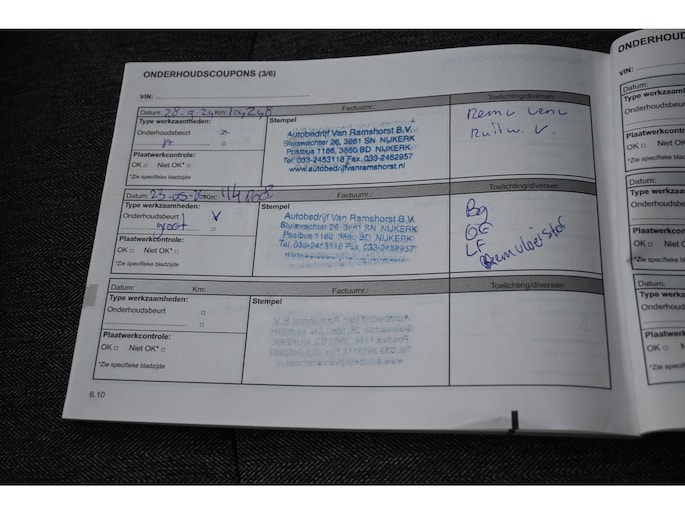 ONDERHOUDSCOUPONS (3/6)
VIN:
Datum: 23-9-24 Km: 109248 Factuurnr.: Toelichting/diversen
Type werkzaamheden:
Onderhoudsbeurt
A
Plaatwerkcontrole:
OK □ Niet OK* □
*Zie specifieke bladzijde
Stempel
Autobedrijf Van Ramshorst B.V.
Sluiswachter 26, 3861 SN NIJKERK
Postbus 1166, 3860 BD NIJKERK
Tel. 033-2453118 Fax. 033-2462957
www.autobedrijfvanramshorst.nl
Remv verv
Ruitw. V.
Datum: 23-05-25 Km: Factuurnr.: Toelichting/diversen
Type werkzaamheden:
Onderhoudsbeurt V
groot
Plaatwerkcontrole:
OK □ Niet OK* □
*Zie specifieke bladzijde
Stempel
Autobedrijf Van Ramshorst B.V.
Sluiswachter 26, 3861 SN NIJKERK
Postbus 1166, 3860 BD NIJKERK
Tel. 033-2453118 Fax. 033-2462957
Bg
OF
LF
Remvloeistof
Datum: Km: Factuurnr.: Toelichting/diversen
Type werkzaamheden:
Onderhoudsbeurt □
Plaatwerkcontrole:
OK □ Niet OK* □
*Zie specifieke bladzijde
Stempel
6.10
VIN:
Datum:
Type werkzaam
Onderhoudsbeu
Plaatwerkcontro
OK □ Niet OK
*Zie specifieke bla
Datum:
Type werkzaa
Onderhoudsbe
Plaatwerkcont
OK □ Niet O
*Zie specifieke
Datum:
Type werkza
Onderhouds
Plaatwerkco
OK □ Niet
*Zie specifiek